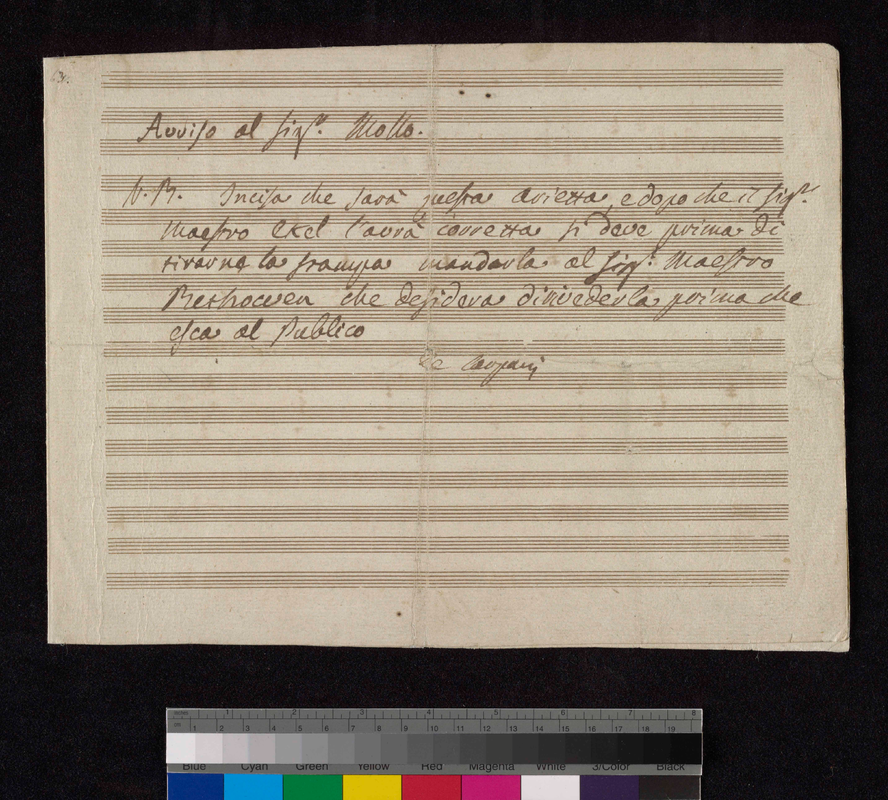 Avviso al Sigr. Mollo.
N.B. Incisa che sarà questa Arietta, e dopo che il Sigr.
Maestro l'avrà corretta si deve prima di
tirarne la stampa mandarla al Sigr. Maestro
Bethowen che desidera di rivederla prima che
esca al Publico
De Carpani
1 2 3 4 5 6 7 8
1 2 3 4 5 6 7 8 9 10 11 12 13 14 15 16 17 18 19
Blue Cyan Green Yellow Red Magenta White 3/Color Black